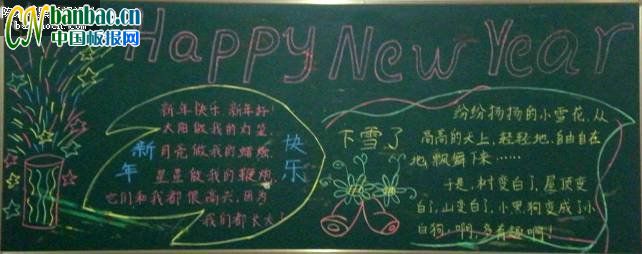 banbac.cn
中国板报网
Happy New Year
新年快乐 新年好!
太阳做我的灯笼,
月亮做我的蜡烛,
星星做我的鞭炮,
它们和我都很高兴,因为
我们都长大了!
新年
快乐
下雪了
纷纷扬扬的小雪花,从
高高的天上,轻轻地,自由自在
地,飘舞下来……
于是,树变白了,屋顶变
白了,山变白了,小黑狗变成了小
白狗,啊,多有趣啊!